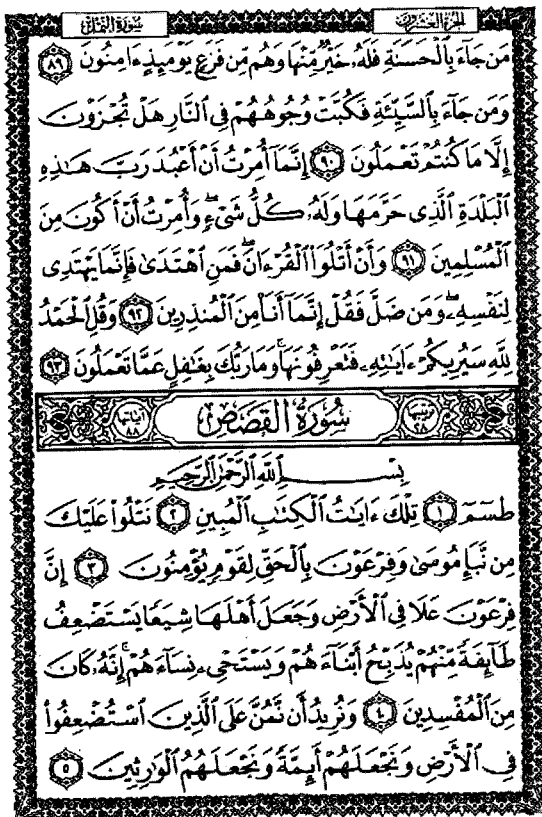 الجزء العشرون سورة النمل
مَن جَآءَ بِٱلْحَسَنَةِ فَلَهُۥ خَيْرٌ مِّنْهَا وَهُم مِّن فَزَعٍ يَوْمَئِذٍ ءَامِنُونَ ٨٩
وَمَن جَآءَ بِٱلسَّيِّئَةِ فَكُبَّتْ وُجُوهُهُمْ فِى ٱلنَّارِ هَلْ تُجْزَوْنَ
إِلَّا مَا كُنتُمْ تَعْمَلُونَ ٩٠ إِنَّمَآ أُمِرْتُ أَنْ أَعْبُدَ رَبَّ هَٰذِهِ
ٱلْبَلْدَةِ ٱلَّذِى حَرَّمَهَا وَلَهُۥ كُلُّ شَىْءٍ ۖ وَأُمِرْتُ أَنْ أَكُونَ مِنَ
ٱلْمُسْلِمِينَ ٩١ وَأَنْ أَتْلُوَا۟ ٱلْقُرْءَانَ ۖ فَمَنِ ٱهْتَدَىٰ فَإِنَّمَا يَهْتَدِى
لِنَفْسِهِۦ ۖ وَمَن ضَلَّ فَقُلْ إِنَّمَآ أَنَا۠ مِنَ ٱلْمُنذِرِينَ ٩٢ وَقُلِ ٱلْحَمْدُ
لِلَّهِ سَيُرِيكُمْ ءَايَٰتِهِۦ فَتَعْرِفُونَهَا ۚ وَمَا رَبُّكَ بِغَٰفِلٍ عَمَّا تَعْمَلُونَ ٩٣
ترتيبها ٢٨ سُورَةُ القَصَصِ آياتها ٨٨
بِسْمِ ٱللَّهِ ٱلرَّحْمَٰنِ ٱلرَّحِيمِ
طسٓمٓ ١ تِلْكَ ءَايَٰتُ ٱلْكِتَٰبِ ٱلْمُبِينِ ٢ نَتْلُوا۟ عَلَيْكَ
مِن نَّبَإِ مُوسَىٰ وَفِرْعَوْنَ بِٱلْحَقِّ لِقَوْمٍ يُؤْمِنُونَ ٣ إِنَّ
فِرْعَوْنَ عَلَا فِى ٱلْأَرْضِ وَجَعَلَ أَهْلَهَا شِيَعًا يَسْتَضْعِفُ
طَآئِفَةً مِّنْهُمْ يُذَبِّحُ أَبْنَآءَهُمْ وَيَسْتَحْىِۦ نِسَآءَهُمْ ۚ إِنَّهُۥ كَانَ
مِنَ ٱلْمُفْسِدِينَ ٤ وَنُرِيدُ أَن نَّمُنَّ عَلَى ٱلَّذِينَ ٱسْتُضْعِفُوا۟
فِى ٱلْأَرْضِ وَنَجْعَلَهُمْ أَئِمَّةً وَنَجْعَلَهُمُ ٱلْوَٰرِثِينَ ٥